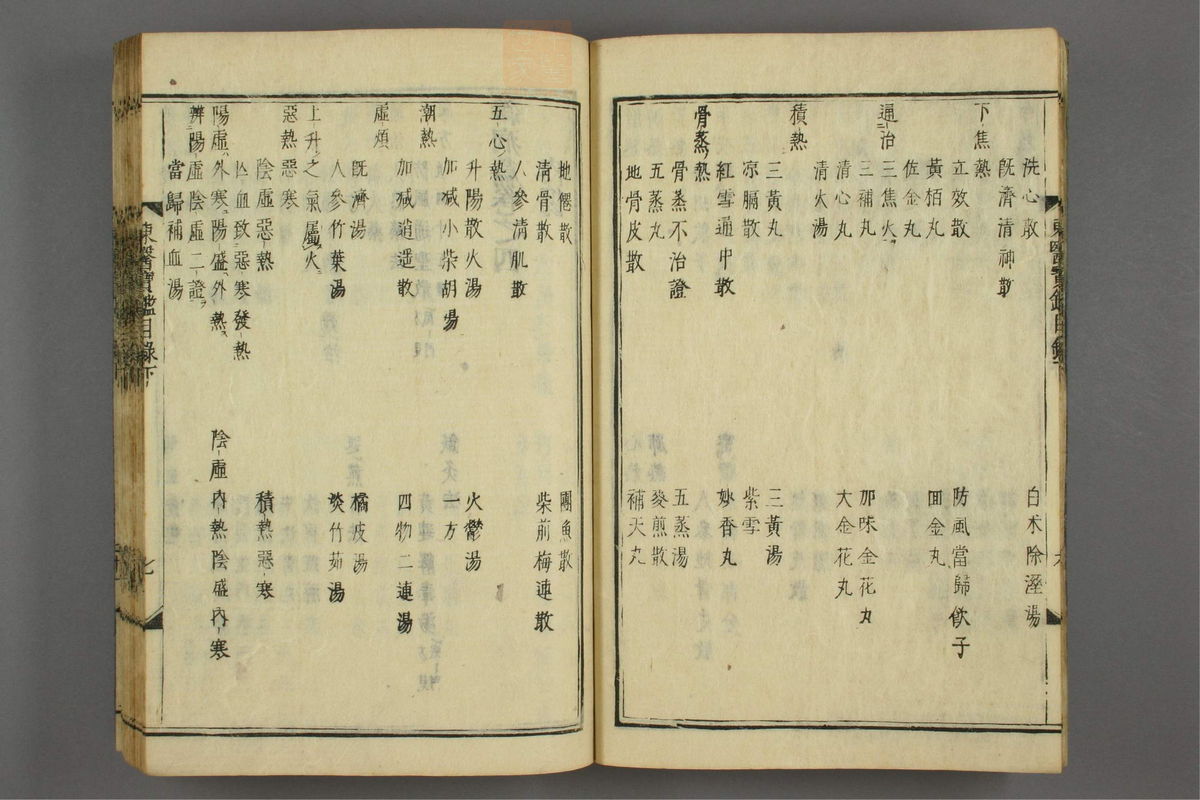 洗心散　白朮除溼湯
既濟清神散
下焦熱
立效散　防風當歸飲子
黃栢丸　回金丸
佐金丸
通治
三焦火
三補丸　加味金花丸
清心丸　大金花丸
清火湯
積熱
三黃丸　三黃湯
凉膈散　紫雪
紅雪通中散　妙香丸
骨蒸熱
骨蒸不治證　五蒸湯
五蒸丸　麥煎散
地骨皮散　補天丸
東醫寶鑑目錄
地僊散　團魚散
清骨散　柴前梅連散
人參清肌散
五心熱
升陽散火湯　火鬱湯
加減小柴胡湯　一方
潮熱
加減逍遥散　四物二連湯
虛煩
既濟湯　橘皮湯
人參竹葉湯　淡竹茹湯
上升之氣屬火
惡熱惡寒
陰虛惡熱　積熱惡寒
亾血致惡寒發熱
陽虛外寒陽盛外熱　陰虛內熱陰盛內寒
辨陽虛陰虛二證
當歸補血湯
東醫寶鑑目錄下　七